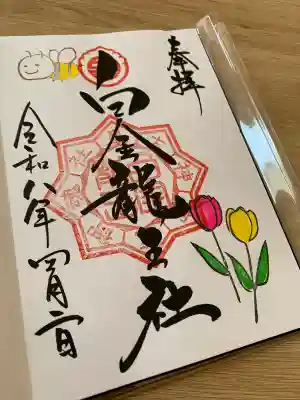 奉拝
白金龍王社
令和八年四月二日